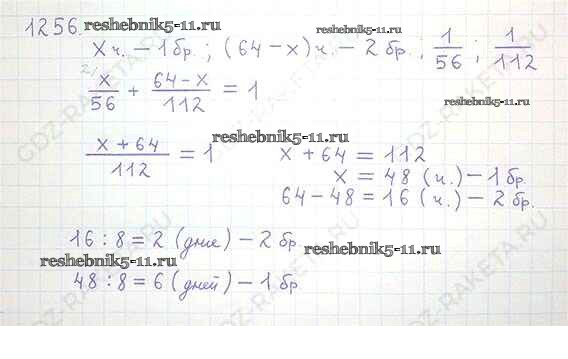 1256. reshebnik5-11.ru
reshebnik5-11.ru
x ч. – 1 бр. ; (64 – x) ч. – 2 бр. ; 1/56 ; 1/112
2/ x/56 + (64 – x)/112 = 1
reshebnik5-11.ru
reshebnik5-11.ru
(x + 64)/112 = 1 x + 64 = 112
x = 48 (ч.) – 1 бр.
64 – 48 = 16 (ч.) – 2 бр.
16 : 8 = 2 (дня) – 2 бр.
reshebnik5-11.ru
reshebnik5-11.ru
48 : 8 = 6 (дней) – 1 бр.
GDZ-RAKETA.RU
GDZ-RAKETA.RU